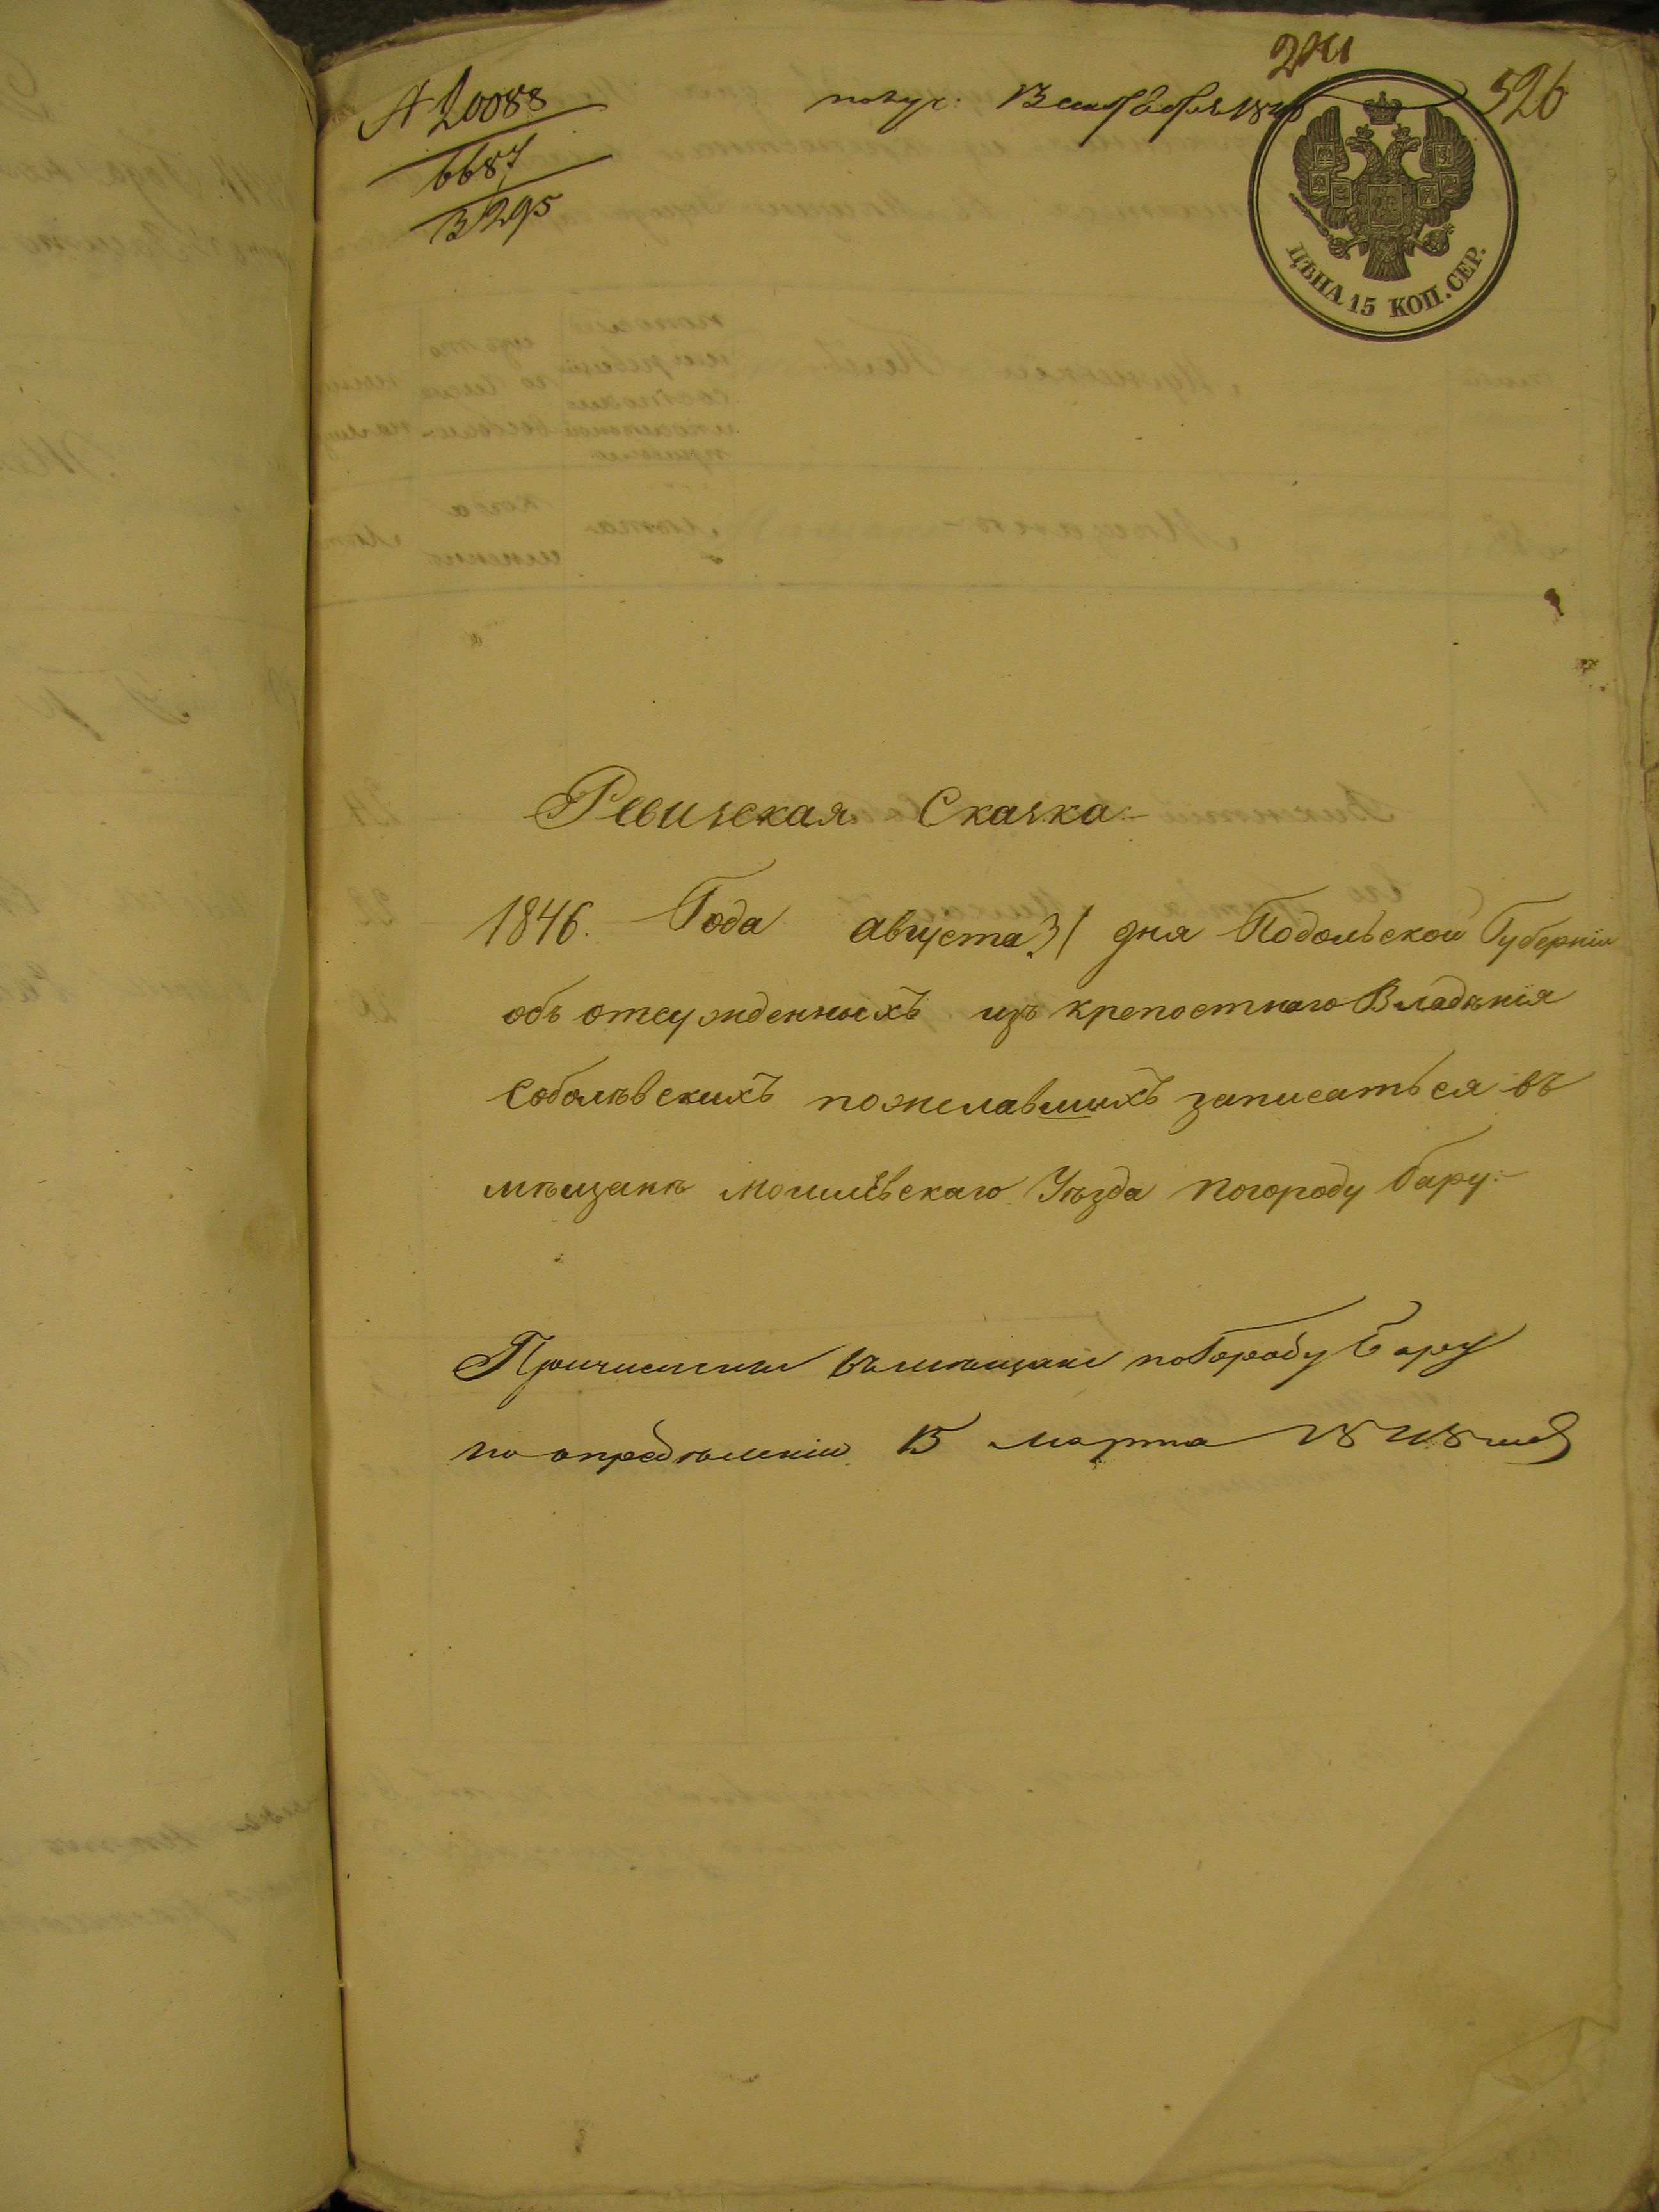 № 20088
6687
3295
получ. 13 Сентября 1846
526
ЦѢНА 15 КОП. СЕР.
Ревизская Сказка
1846. Года августа 31 дня Подольской Губерніи
объ отсужденныхъ изъ крепостнаго Владѣнія
Соболѣвскихъ пожелавшихъ записаться въ
мѣщанѣ могилёвскаго Уѣзда погороду Бару
Причислены въ мѣщане по Городу Бару
по опредѣленію 15 марта 1848